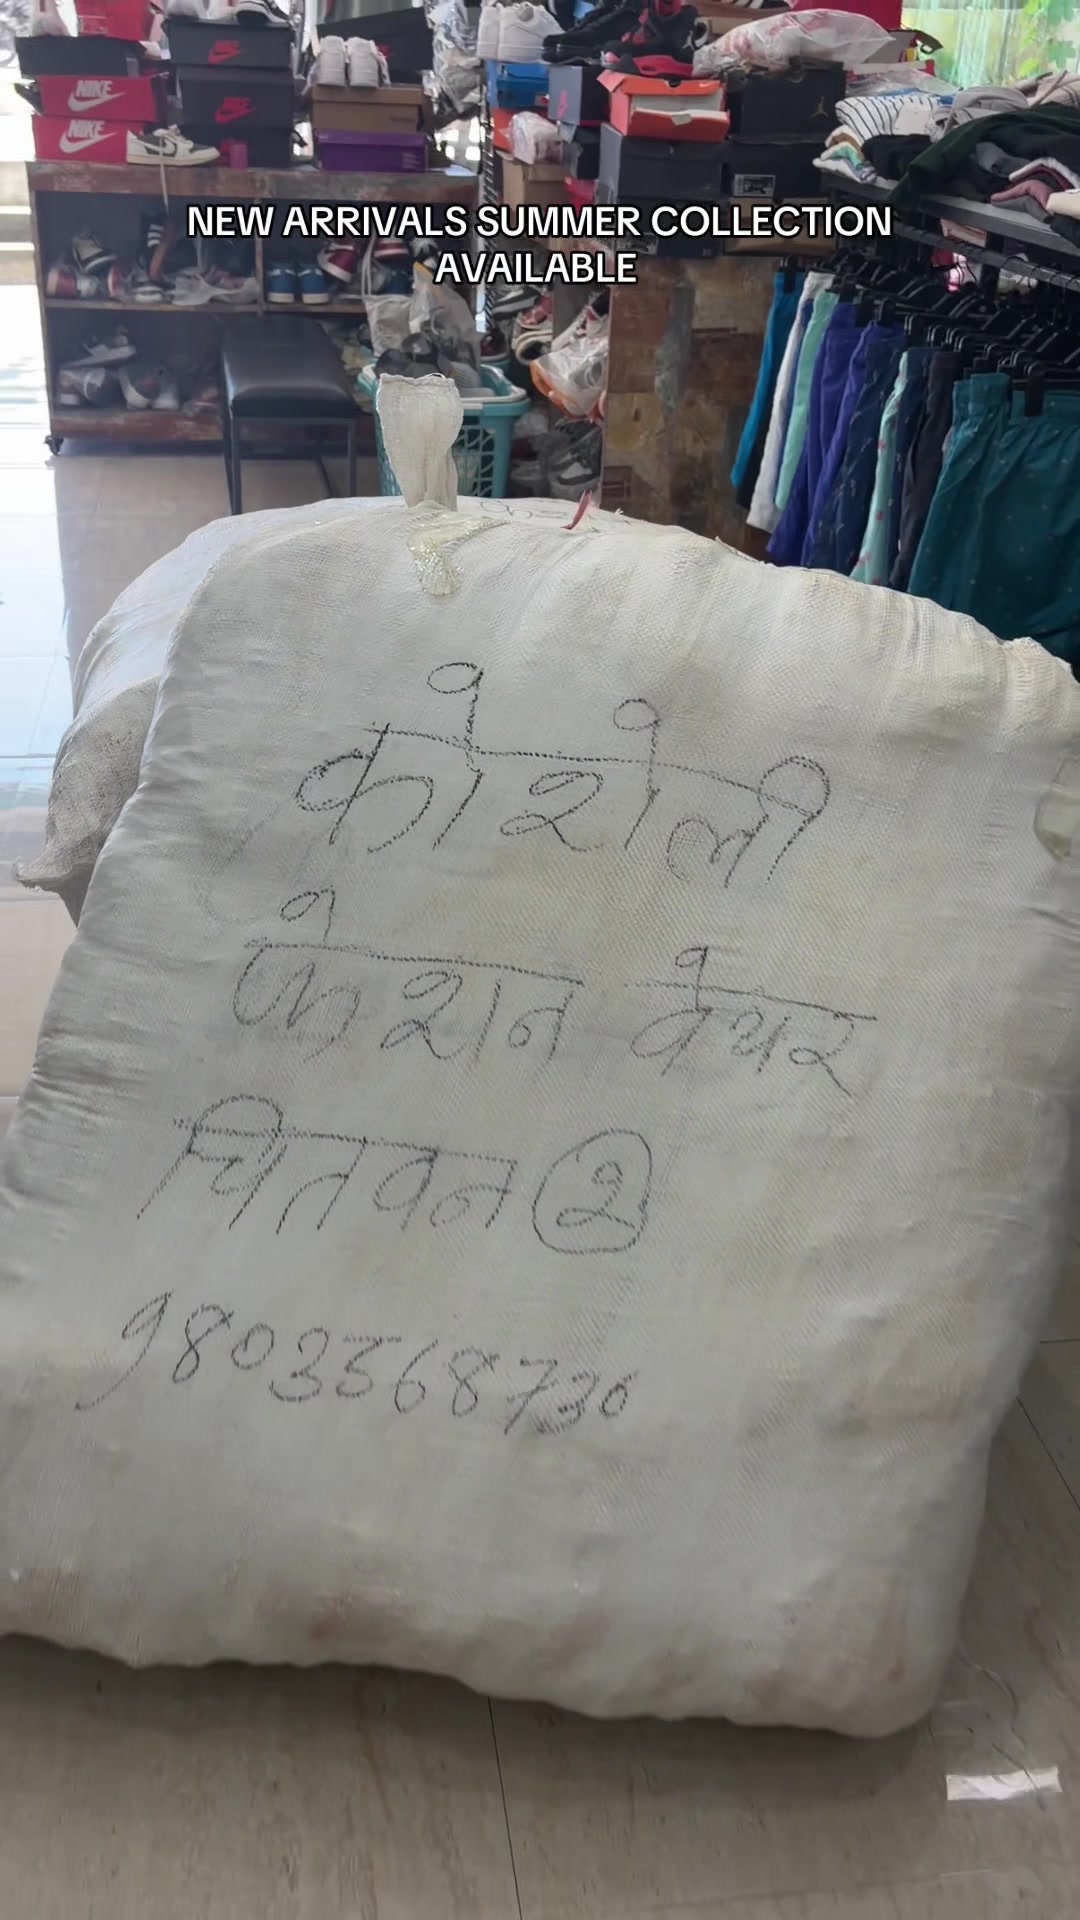 NIKE
NIKE
NEW ARRIVALS SUMMER COLLECTION
AVAILABLE
कोशेली
फेशन वेयर
चितवन २
9803568730